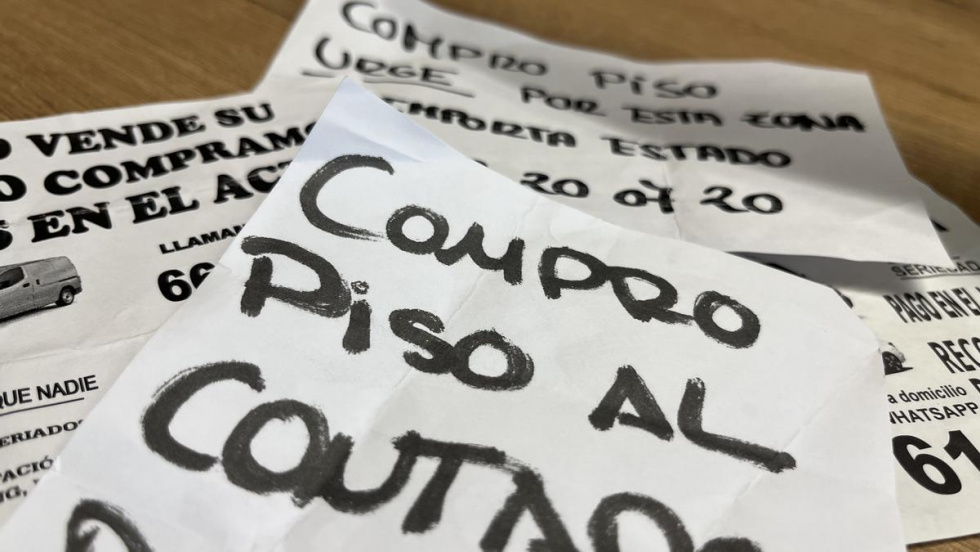 COMPRO PISO
URGE POR ESTA ZONA
IMPORTA ESTADO
20 07 20
VENDE SU
COMPRAMOS
EN EL
LLAMAR
66
QUE NADIE
COMPRO
PISO AL
COUTADO
SERIEDAD
PAGO EN EL
a domicilio
WHATSAPP
61